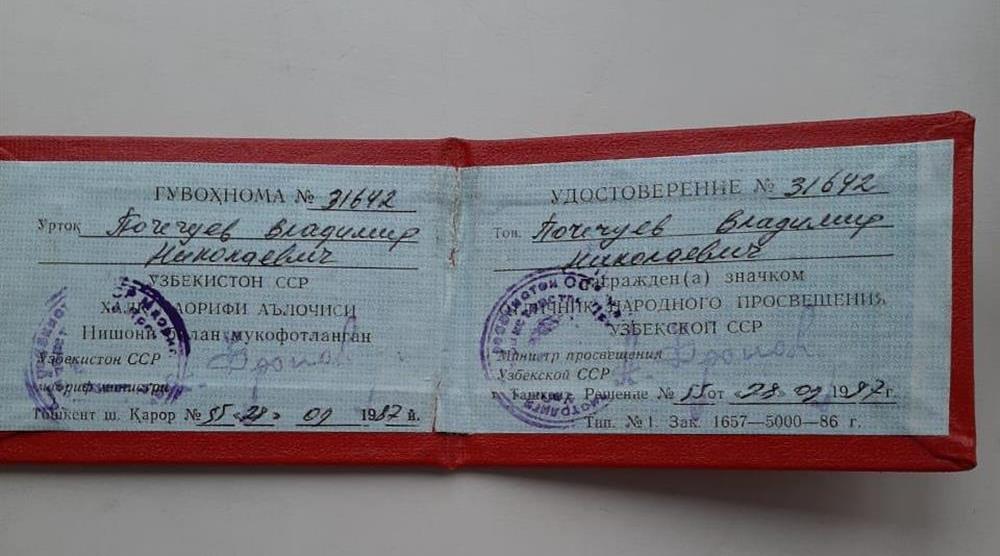 ГУВОҲНОМА № 31642
Урток Почечуев Владимир
Николаевич
УЗБЕКИСТОН ССР
ХАЛҚ МАОРИФИ АЪЛОЧИСИ
Нишони билан мукофотланган
Узбекистон ССР
маориф министри
Тошкент ш. Қарор № 55 «28» 09 1987 й.
УДОСТОВЕРЕНИЕ № 31642
Тов. Почечуев Владимир
Николаевич
награжден(а) значком
ОТЛИЧНИК НАРОДНОГО ПРОСВЕЩЕНИЯ
УЗБЕКСКОЙ ССР
Министр просвещения
Узбекской ССР
г. Ташкент. Решение № 55 от «28» 09 1987 г.
Тип. №1. Зак. 1657—5000—86 г.